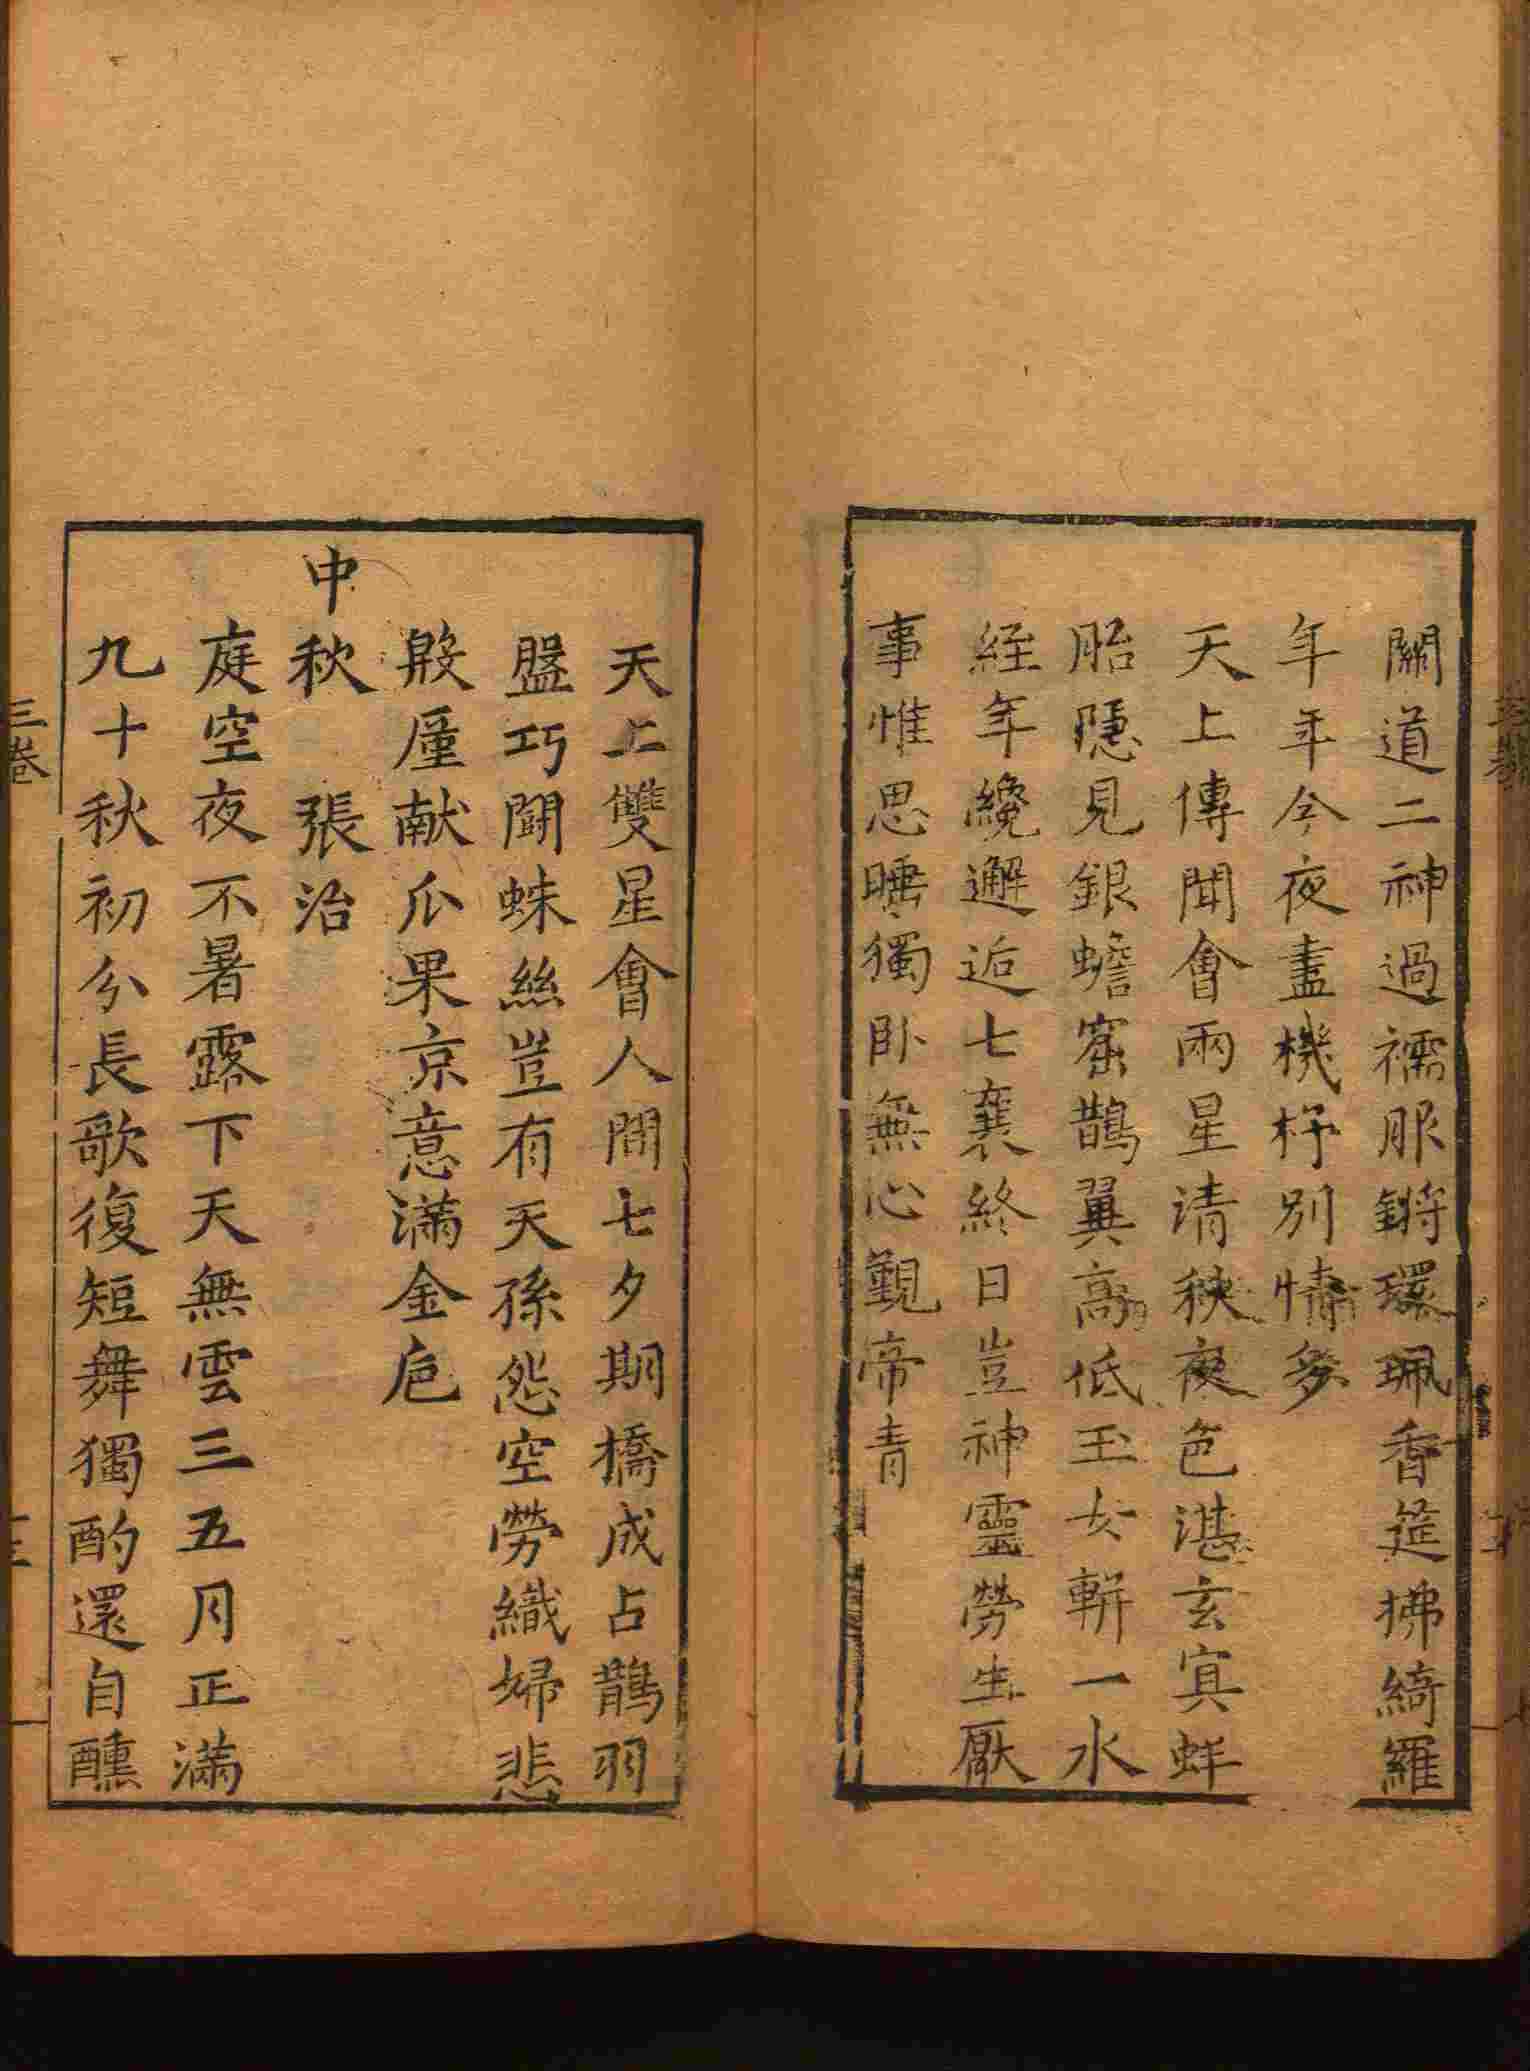 關道二神過襦服鏘環珮香筵拂綺羅
年年今夜盡機杼別情多
天上傳聞會兩星清秋夜色湛玄冥蚌
胎隱見銀蟾窟鵲翼高低玉女輧一水
經年纔邂逅七襄終日豈神靈勞生厭
事惟思睡獨臥無心覲帝青
天上雙星會人間七夕期橋成占鵲羽
盤巧鬪蛛絲豈有天孫怨空勞織婦悲
殽廛献瓜果京意滿金巵
中秋　張治
庭空夜不暑露下天無雲三五月正滿
九十秋初分長歌復短舞獨酌還自醺
三卷